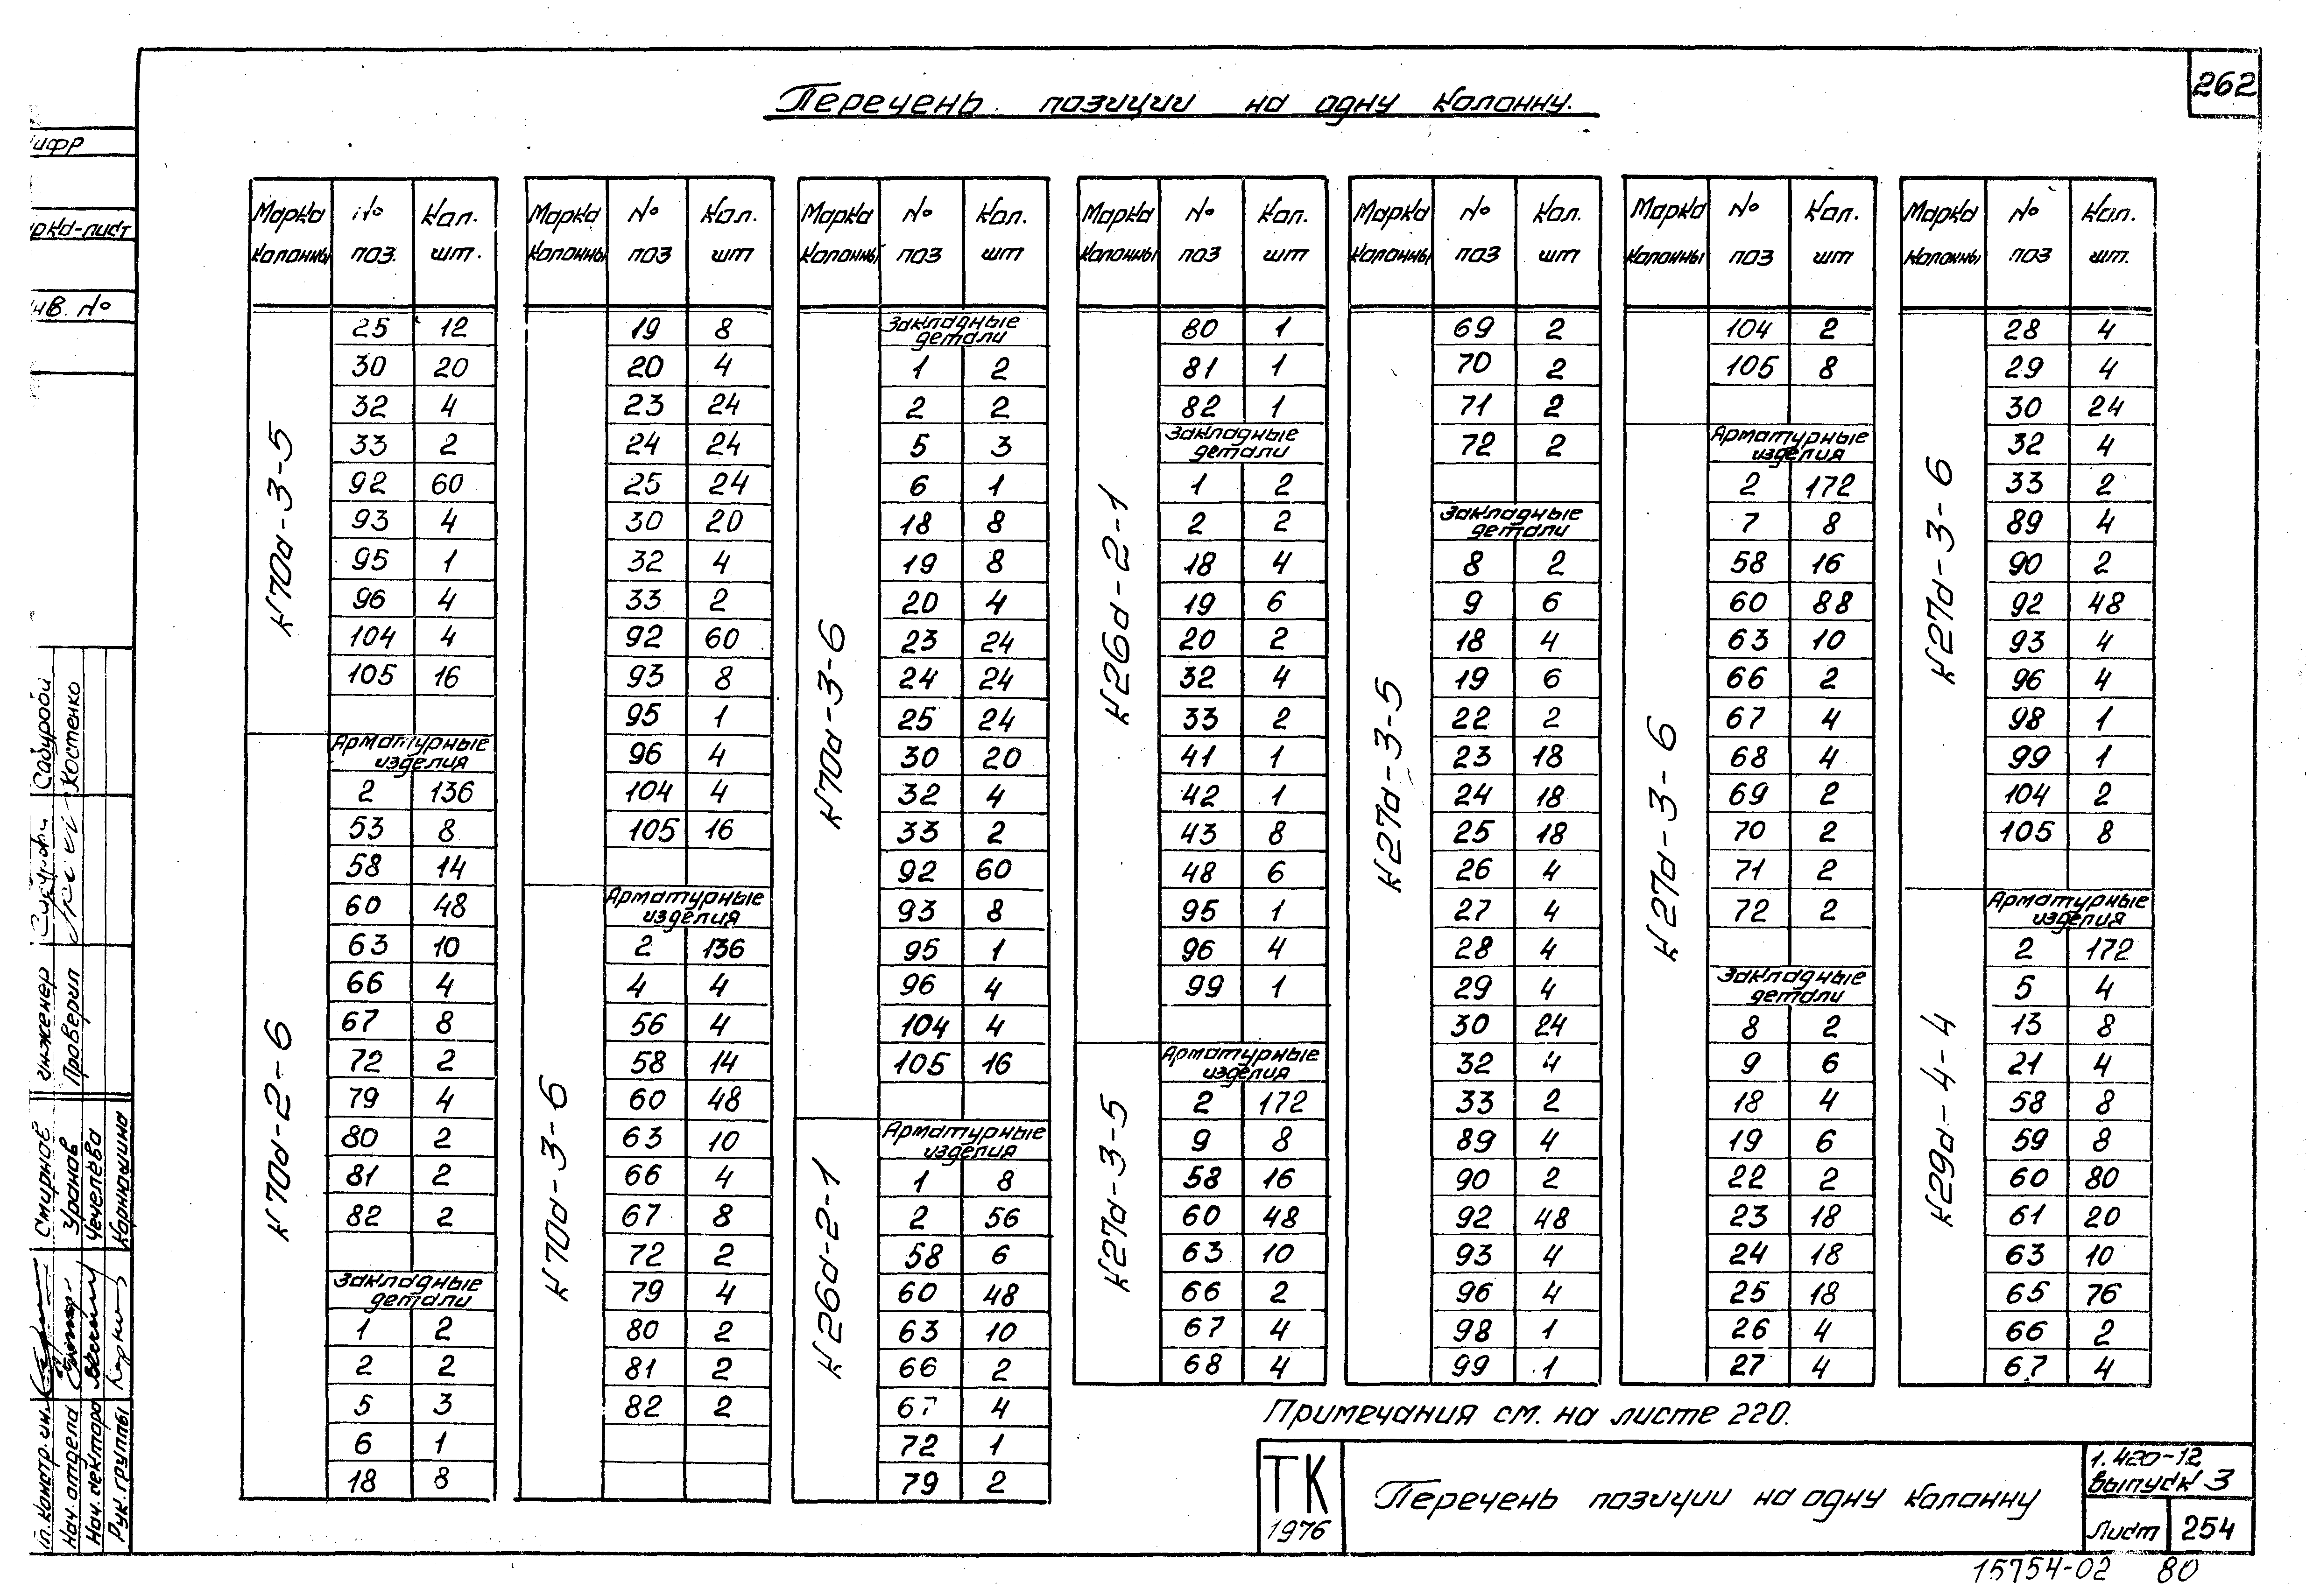 262
Перечень позиции на одну колонну.
Марка колонны № поз. Кол. шт.
К70д-3-5
25 12
30 20
32 4
33 2
92 60
93 4
95 1
96 4
104 4
105 16
К70д-2-6
Арматурные изделия
2 136
53 8
58 14
60 48
63 10
66 4
67 8
72 2
79 4
80 2
81 2
82 2
Закладные детали
1 2
2 2
5 3
6 1
18 8
Марка колонны № поз Кол. шт
19 8
20 4
23 24
24 24
25 24
30 20
32 4
33 2
92 60
93 8
95 1
96 4
104 4
105 16
К70д-3-6
Арматурные изделия
2 136
4 4
56 4
58 14
60 48
63 10
66 4
67 8
72 2
79 4
80 2
81 2
82 2
Марка колонны № поз Кол. шт
К70д-3-6
Закладные детали
1 2
2 2
5 3
6 1
18 8
19 8
20 4
23 24
24 24
25 24
30 20
32 4
33 2
92 60
93 8
95 1
96 4
104 4
105 16
К26д-2-1
Арматурные изделия
1 8
2 56
58 6
60 48
63 10
66 2
67 4
72 1
79 2
Марка колонны № поз Кол. шт
К26д-2-1
80 1
81 1
82 1
Закладные детали
1 2
2 2
18 4
19 6
20 2
32 4
33 2
41 1
42 1
43 8
48 6
95 1
96 4
99 1
К27д-3-5
Арматурные изделия
2 172
9 8
58 16
60 48
63 10
66 2
67 4
68 4
Марка колонны № поз Кол. шт
К27д-3-5
69 2
70 2
71 2
72 2
Закладные детали
8 2
9 6
18 4
19 6
22 2
23 18
24 18
25 18
26 4
27 4
28 4
29 4
30 24
32 4
33 2
89 4
90 2
92 48
93 4
96 4
98 1
99 1
Марка колонны № поз Кол. шт
104 2
105 8
К27д-3-6
Арматурные изделия
2 172
7 8
58 16
60 88
63 10
66 2
67 4
68 4
69 2
70 2
71 2
72 2
Закладные детали
8 2
9 6
18 4
19 6
22 2
23 18
24 18
25 18
26 4
27 4
Марка колонны № поз Кол. шт.
К27д-3-6
28 4
29 4
30 24
32 4
33 2
89 4
90 2
92 48
93 4
96 4
98 1
99 1
104 2
105 8
К29д-4-4
Арматурные изделия
2 172
5 4
13 8
21 4
58 8
59 8
60 80
61 20
63 10
65 76
66 2
67 4
Примечания см. на листе 220.
ТК
1976
Перечень позиции на одну колонну
1.420-12
выпуск 3
Лист 254
15754-02 80
инженер Сабурова
Проверил Костенко
Смирнов
Нач. отдела Уранов
Нач. сектора Чечелева
Рук. группы Корнюшина